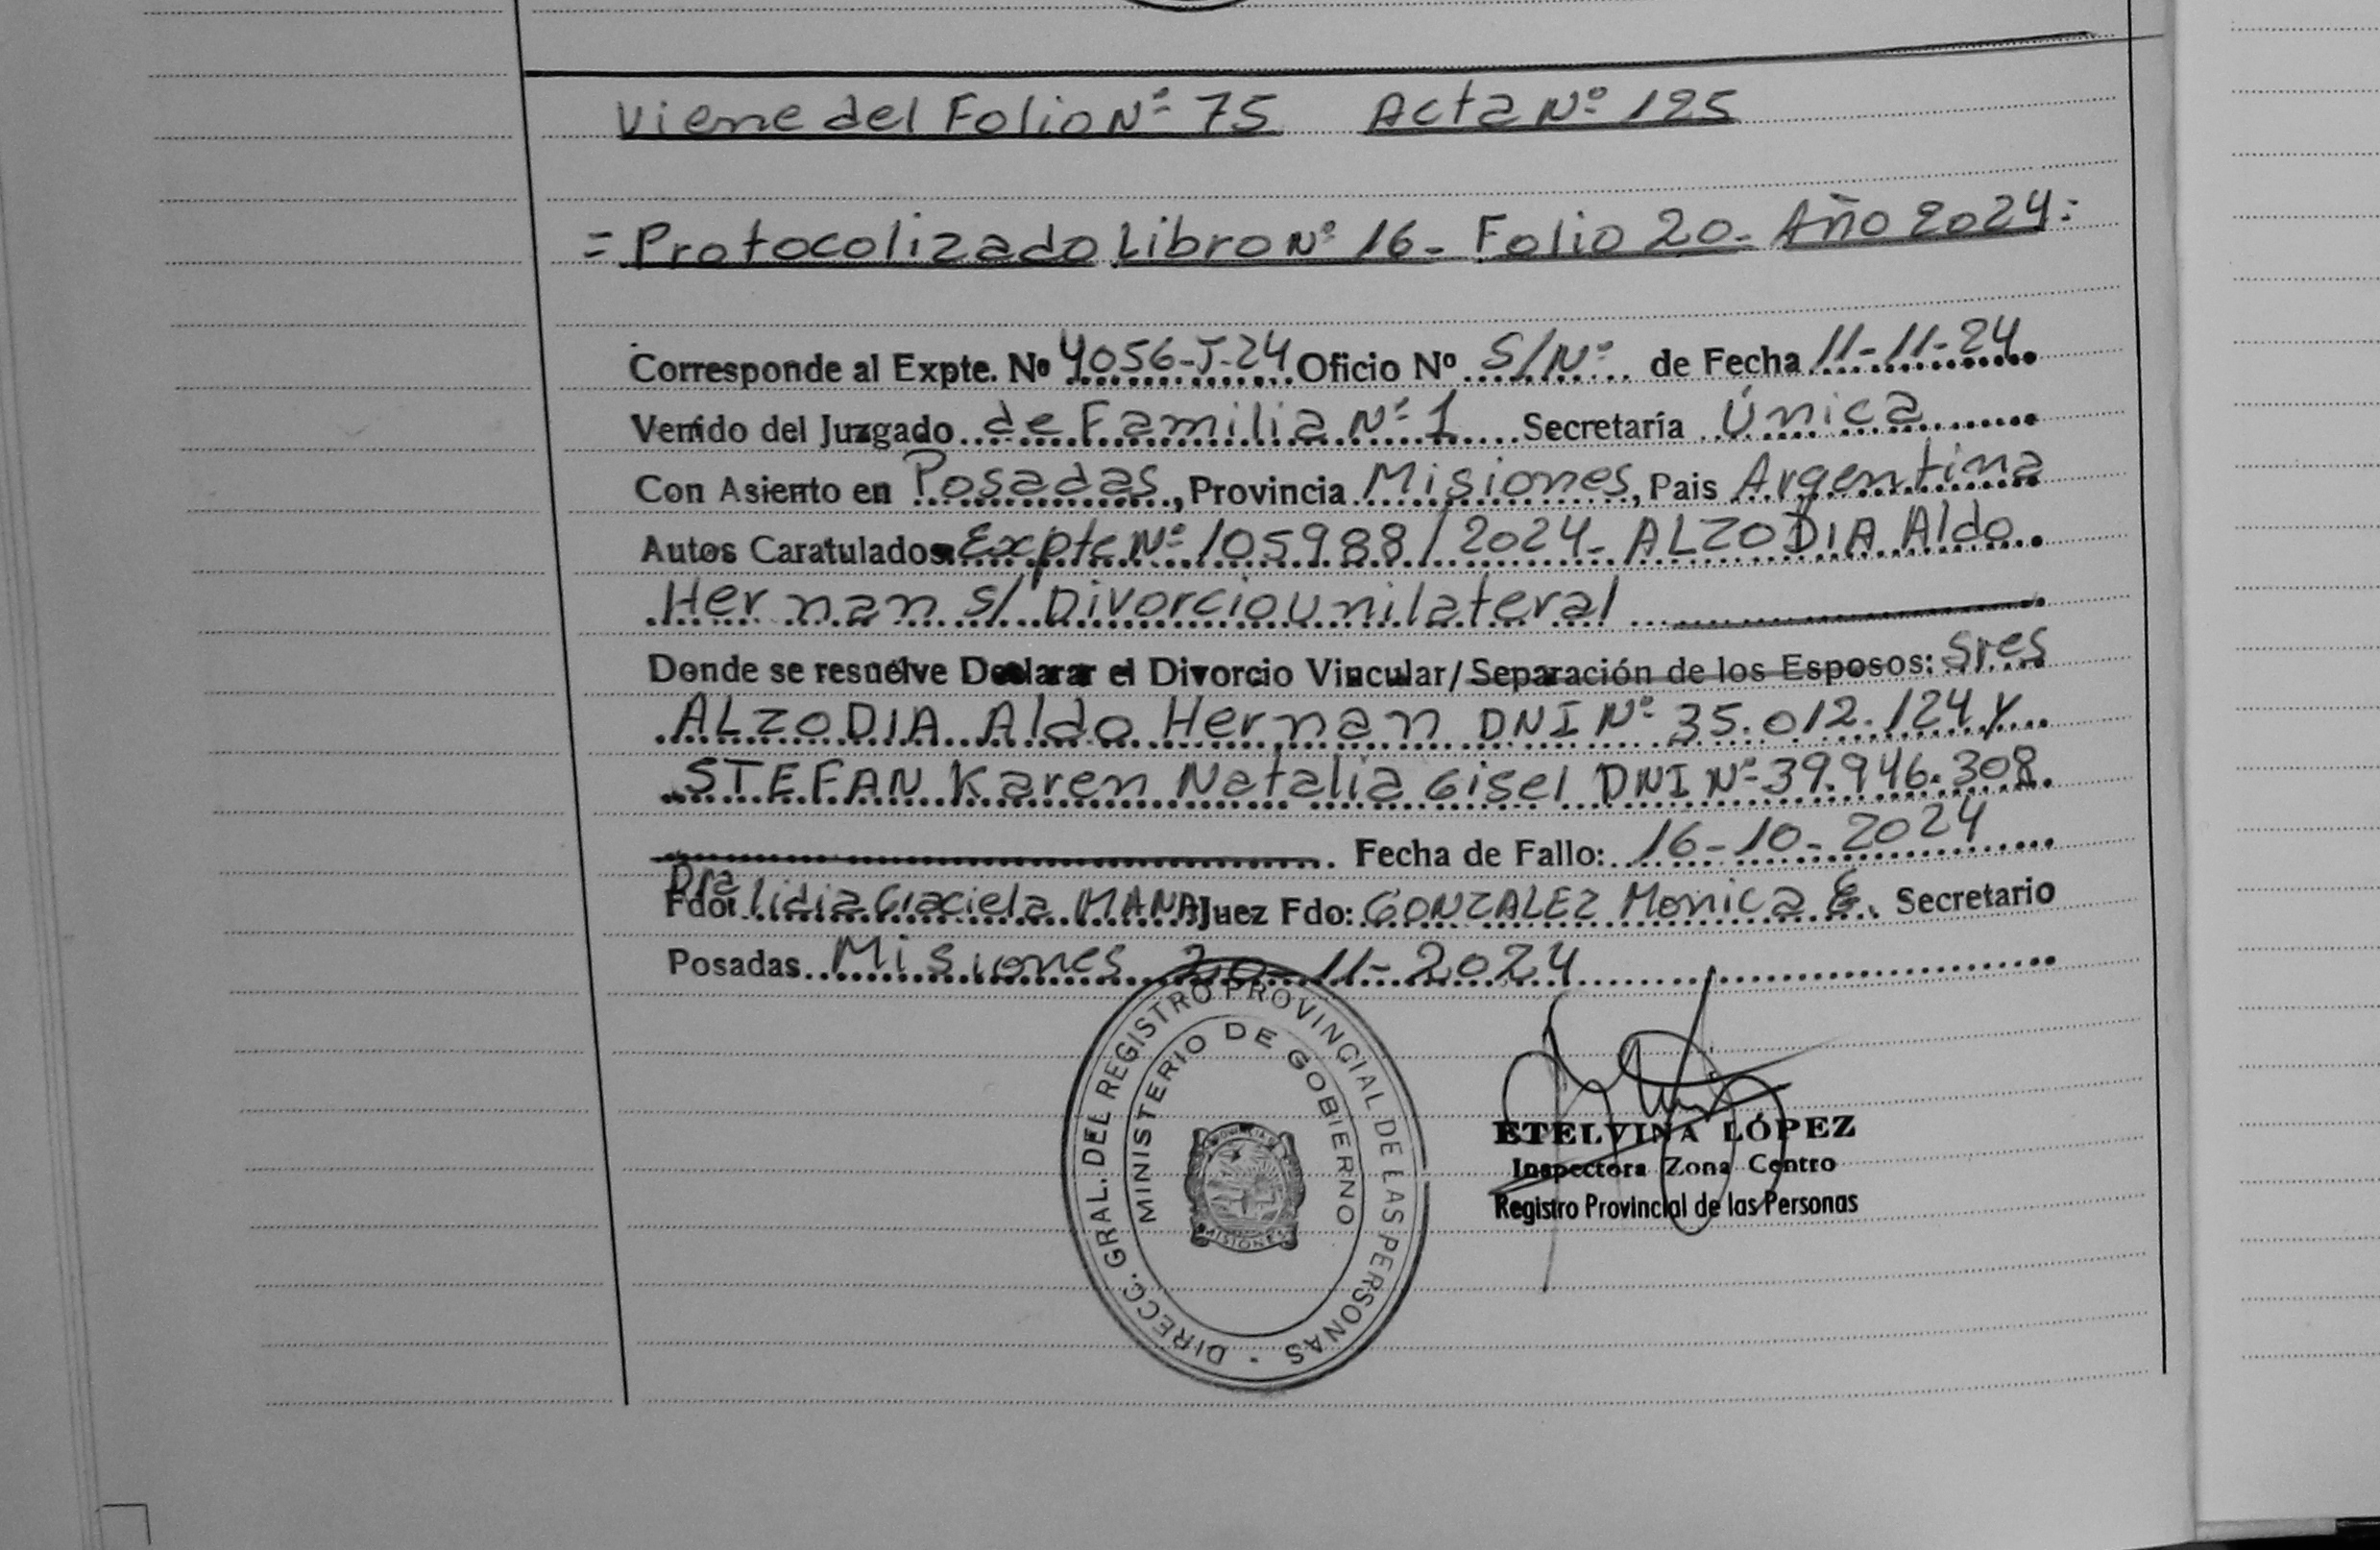 Viene del Folio Nº 75 Acta Nº 125
= Protocolizado Libro Nº 16- Folio 20- Año 2024=
Corresponde al Expte. Nº 4056-J-24 Oficio Nº S/Nº de Fecha 11-11-24
Venido del Juzgado de Familia Nº 1 Secretaría Única
Con Asiento en Posadas, Provincia Misiones, Pais Argentina
Autos Caratulados Expte Nº 105988/2024- ALZODIA Aldo
Hernan s/ Divorcio unilateral
Donde se resuelve Declarar el Divorcio Vincular/Separación de los Esposos: Sres
ALZODIA Aldo Hernan DNI Nº 35.012.124 y
STEFAN Karen Natalia Gisel DNI Nº 39.946.308.
Fecha de Fallo: 16-10-2024
Dra
Fdo: Lidia Graciela Juez Fdo: GONZALEZ Monica E. Secretario
Posadas Misiones 20-11-2024
DIRECC. GRAL. DEL REGISTRO PROVINCIAL DE LAS PERSONAS
MINISTERIO DE GOBIERNO
MISIONES
ETELVINA LÓPEZ
Inspectora Zona Centro
Registro Provincial de las Personas